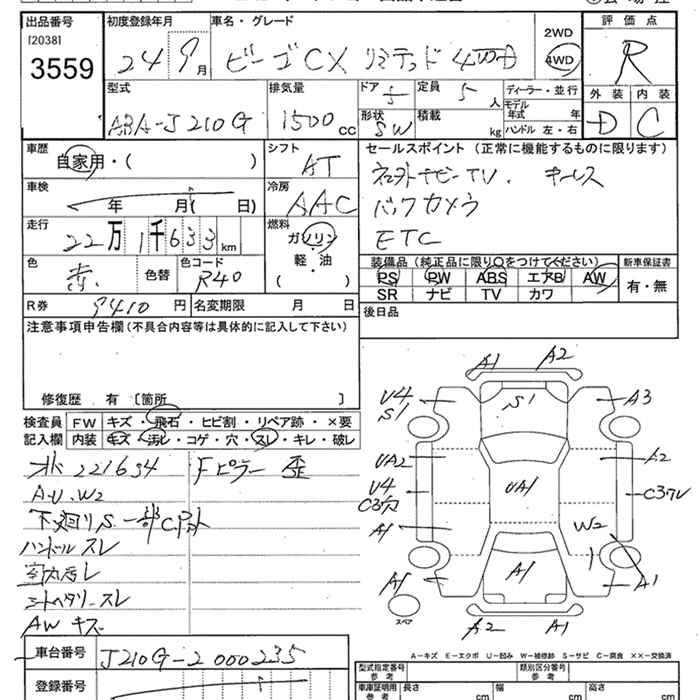 出品番号 初度登録年月 車名・グレード 評価点
[2038]
3559
24 9月 ビーゴ CX リミテッド 4WD
2WD
4WD
R
型式 排気量 ドア 5 定員 5人 ディーラー・並行 外装 内装
ABA-J210G 1500cc 形状 SW 積載 kg モデル年式 年 D C
ハンドル 左・右
車歴 シフト セールスポイント (正常に機能するものに限ります)
自家用・( ) AT
車検 冷房 キーレス
年 月( 日) AAC バックカメラ
走行 燃料 ETC
22万1千633km ガソリン
軽・油
( )
色 色替 色コード
赤 R40
装備品 (純正品に限り○をつけてください) 新車保証書
PS PW ABS エアB AW 有・無
SR ナビ TV カワ
R券 9410円 名変期限 月 日 後日品
注意事項申告欄 (不具合内容等は具体的に記入して下さい)
修復歴 有 〔箇所 〕
検査員記入欄 FW キズ・飛石・ヒビ割・リペア跡・×要
内装 キズ・汚レ・コゲ・穴・スレ・キレ・破レ
221634 Fピラー 歪
A.U.W2
下廻りS.
ハンドルスレ
シートヘタリ・スレ
AWキズ
A1 A2
U4 S1 S1 A3
UA2 A2
U4 UA1 C3穴
A1 W2
A1 A1 A1
A2 A1
スペア
A-キズ E-エクボ U-凹み W-補修跡 S-サビ C-腐食 XX-交換済
車台番号 J210G-2000235
登録番号
型式指定番号 参考 類別区分番号
車庫証明用 参考 長さ cm 幅 cm 高さ cm